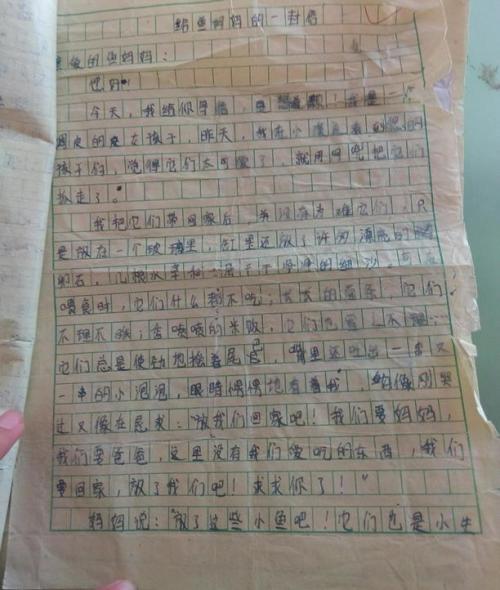 给鱼妈妈的一封信
的鱼妈妈：
您好！
今天，我给你写信，是想 ：我是一
皮的 孩子，昨天，我在小 看 的
孩子们，觉得它们太可爱了，就用网兜把它们
抓走了。
我把它们带回家后，并没有为难它们。只
是放在一个玻璃 里，缸里还放了许多漂亮的
石，几根水草和一层 的细沙。
喂食时，它们什么都不吃： 的 ，它们
不理不睬；香喷喷的米饭，它们也
它们总是使劲地摇着尾巴，嘴里还吐出一串又
一串的小泡泡，眼睛偶偶地看着我，好像刚哭
过又像在哀求：“放我们回家吧！我们要妈妈，
我们要爸爸，这里没有我们爱吃的东西，我们
要回家，放了我们吧！求求你了！”
妈妈说：“放了这些小鱼吧！它们也是小生